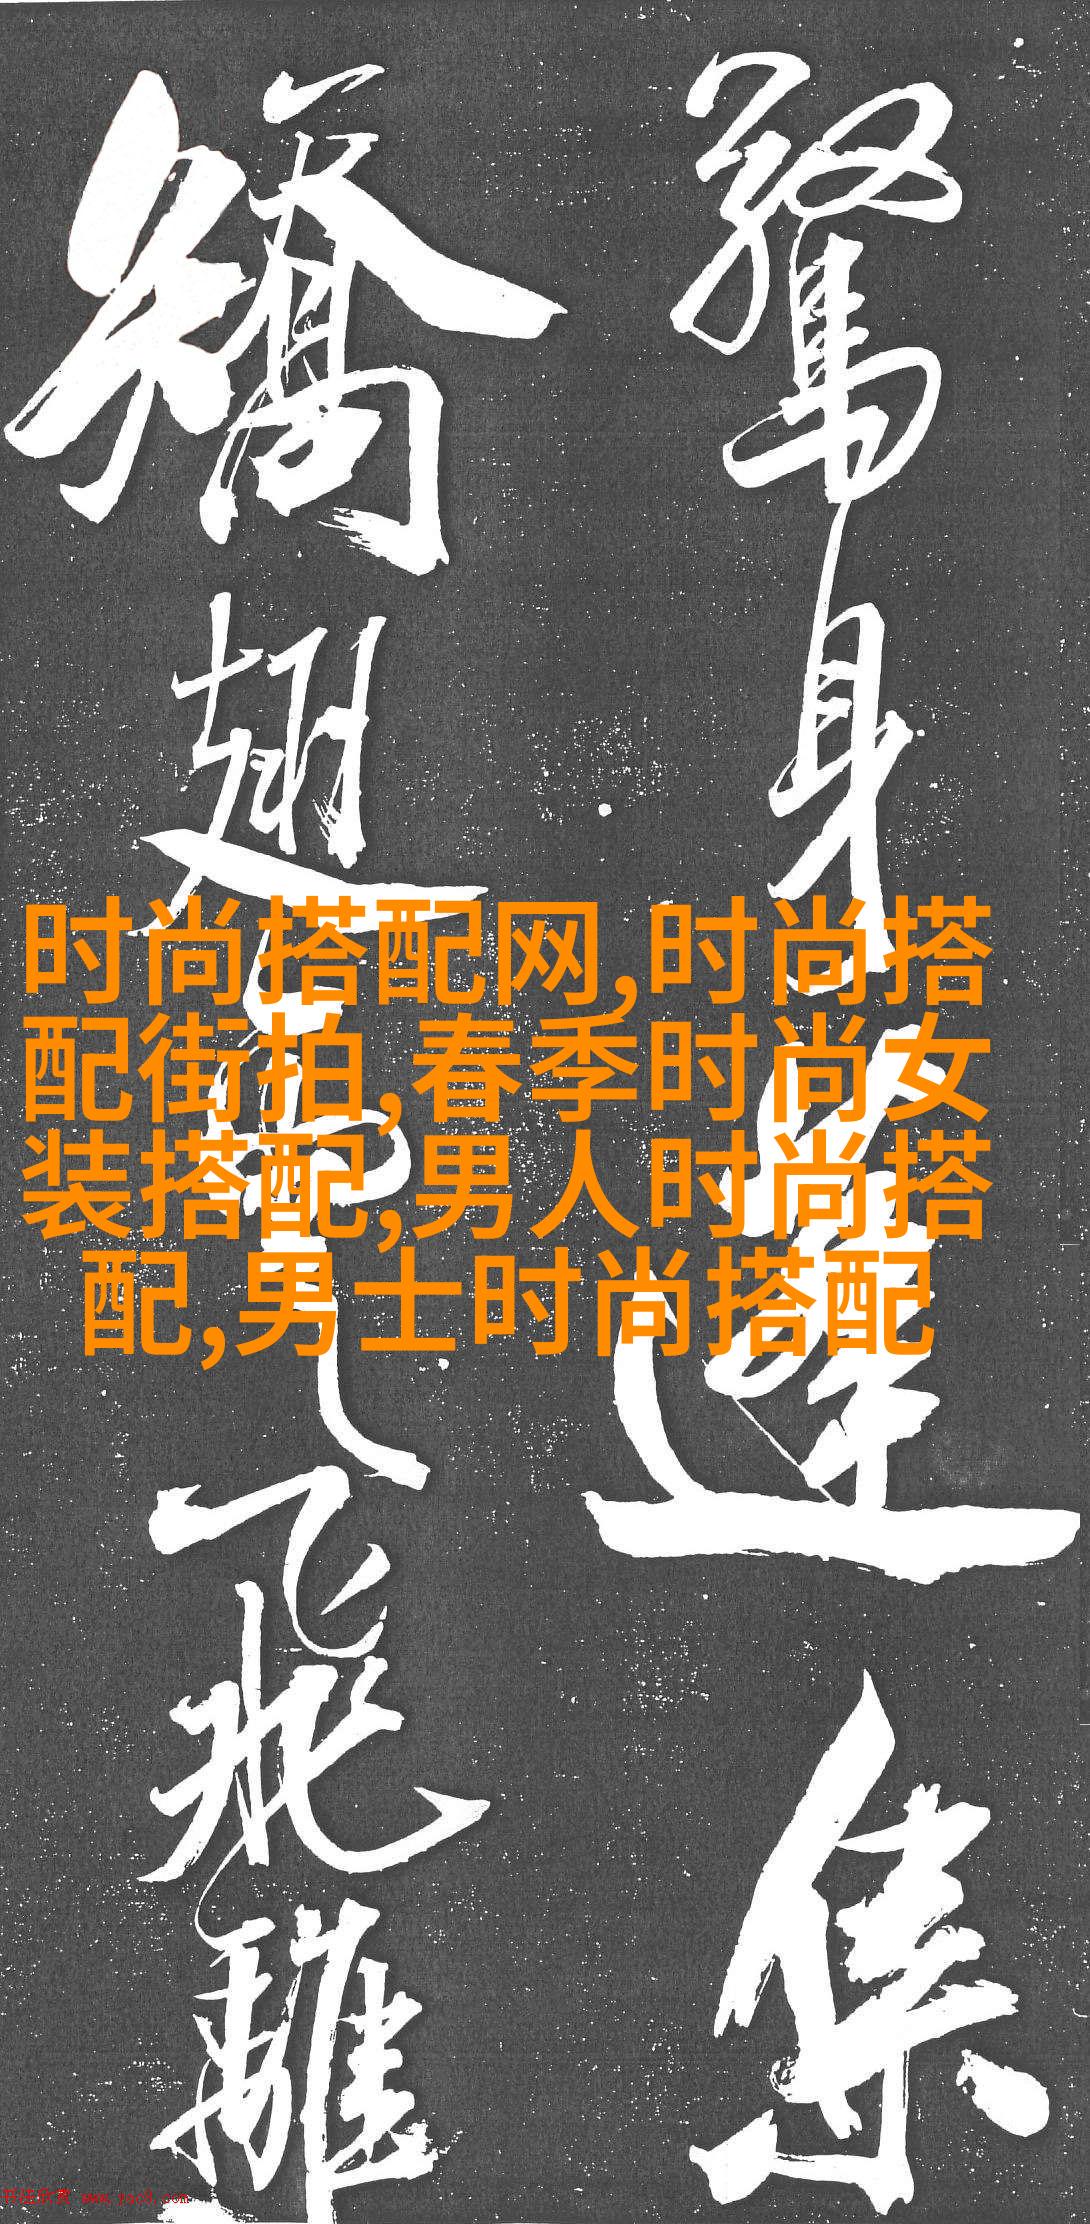 驚身蓬集
矯翅雪飛離
时尚搭配网,时尚搭
配街拍,春季时尚女
装搭配,男人时尚搭
配,男士时尚搭配
书法欣赏 www.yac8.com